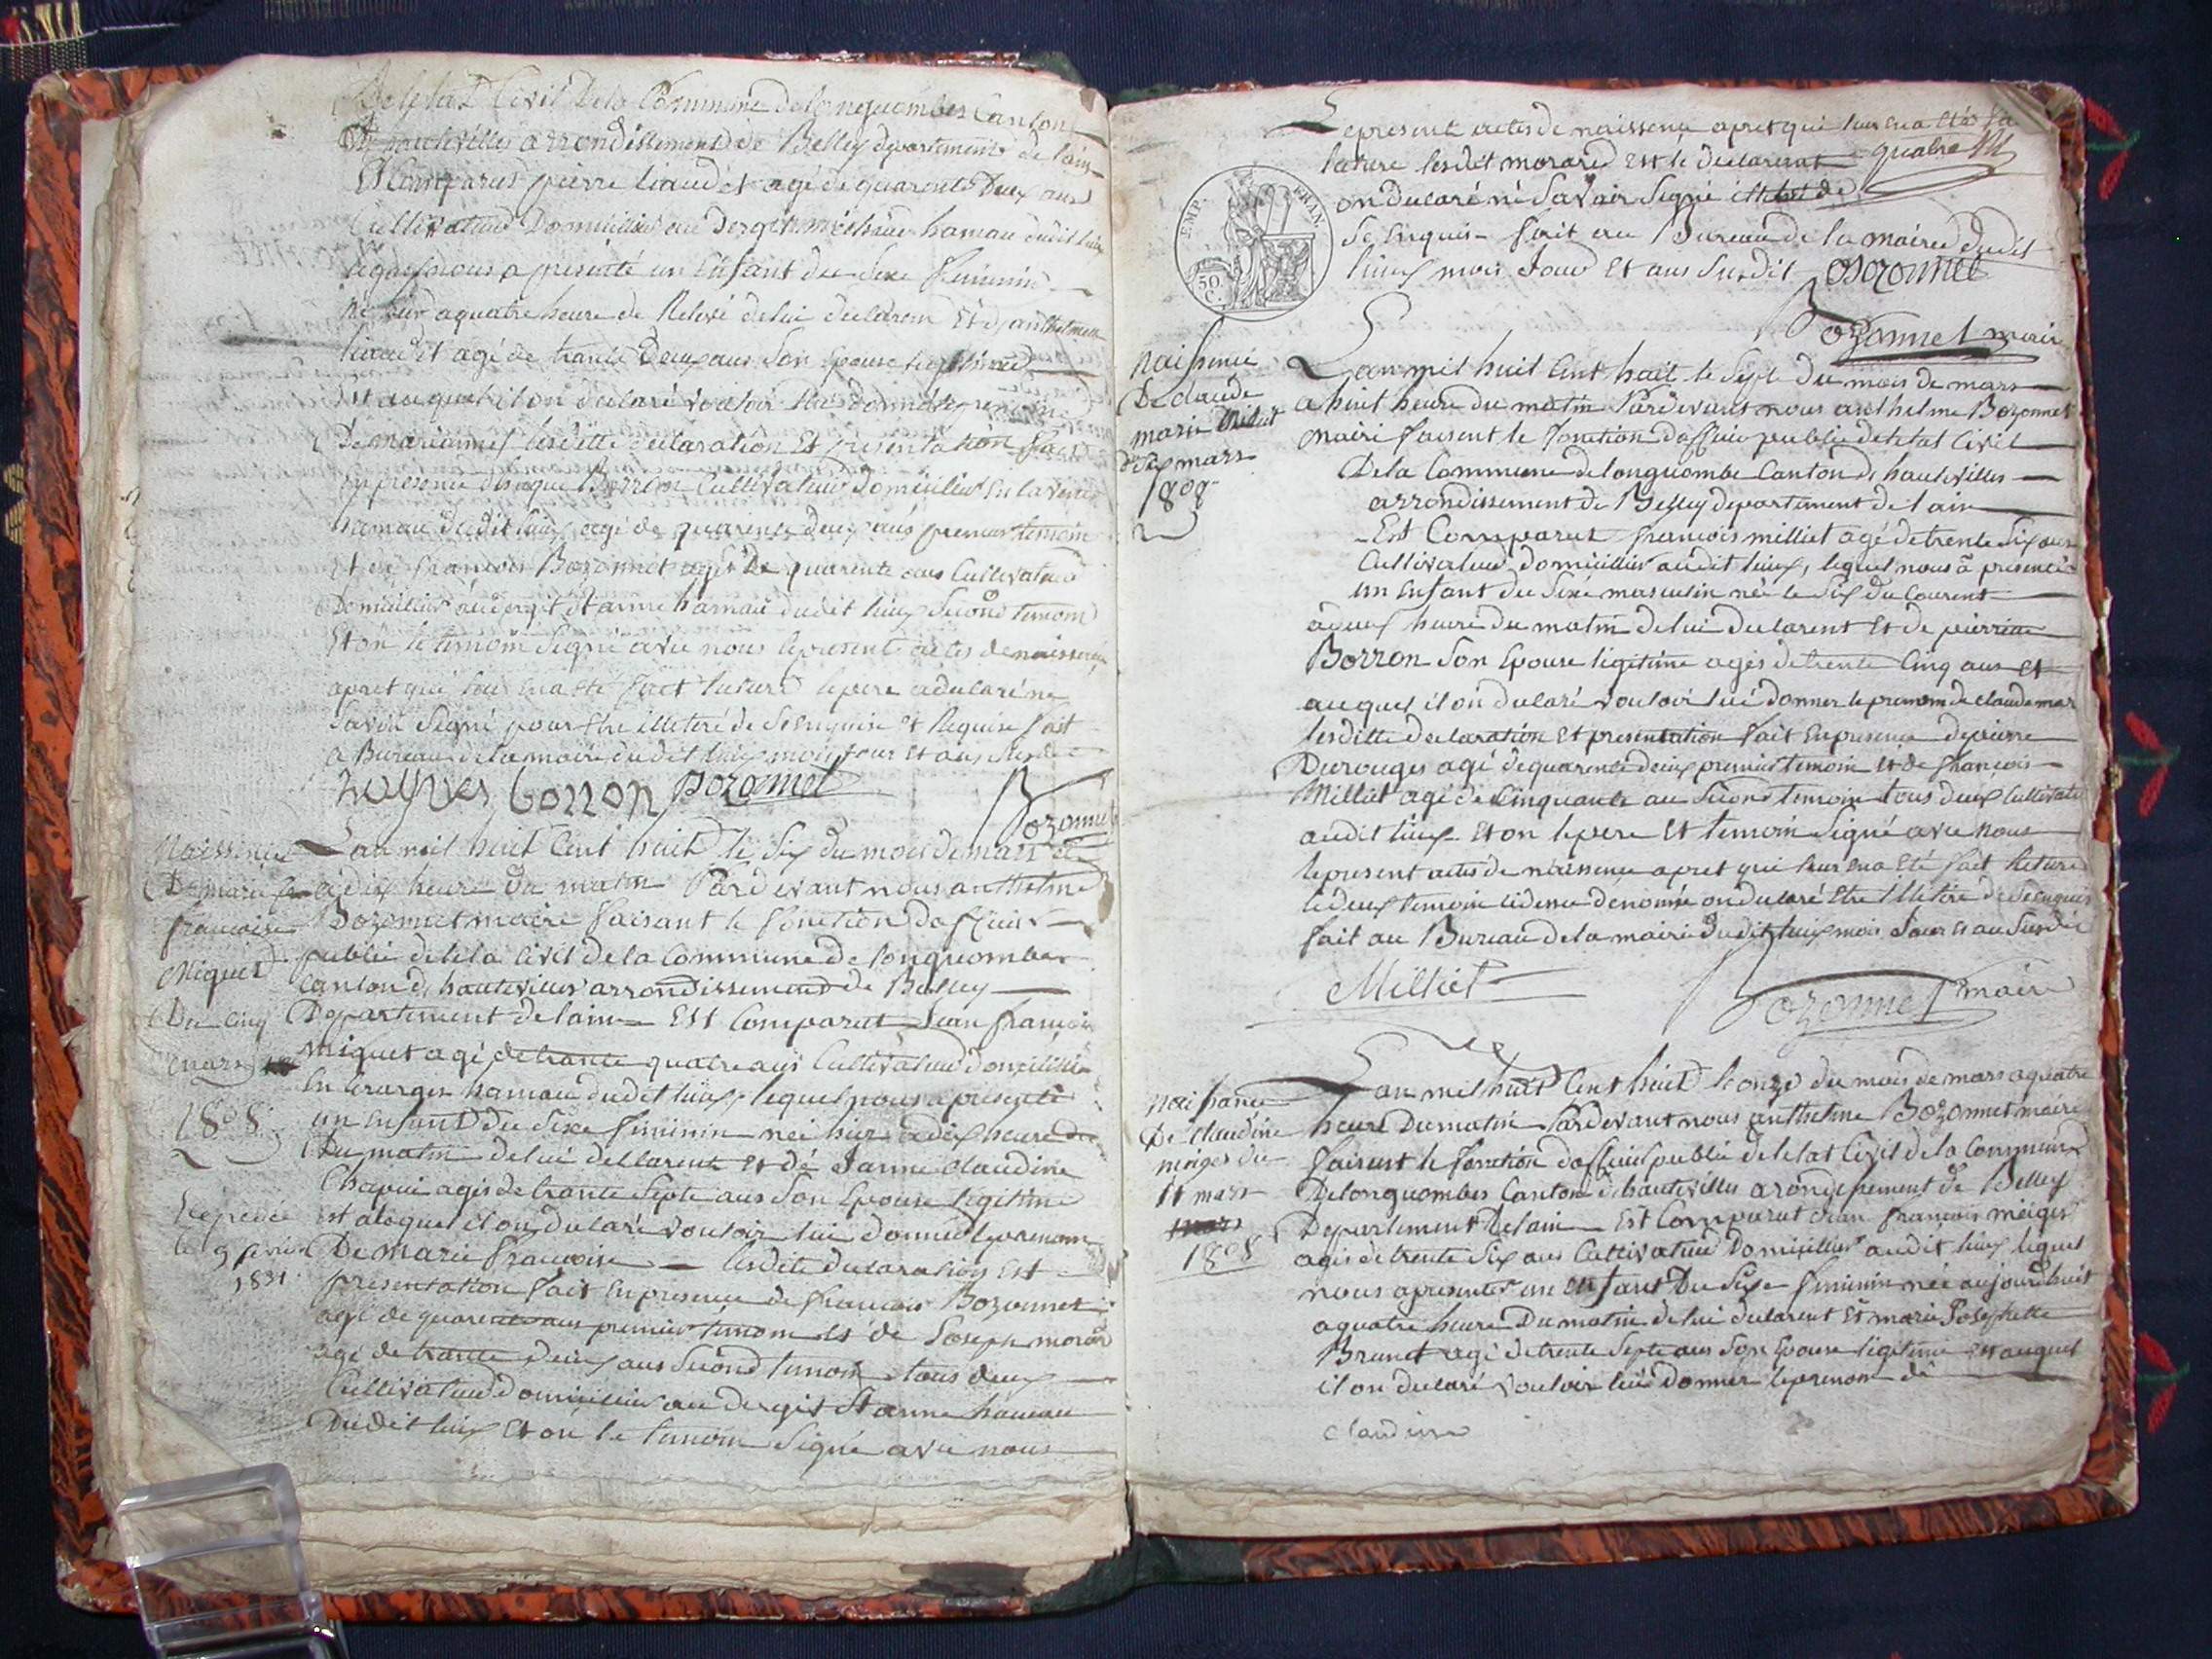 De letat Civil De la Commune de longuombes Canton
De hautevilles arrondissement de Belley departement de lain
Est Comparus pierre liaudet agé de quarente Deux ans
Cultivateur Domicilier au Dergit hamau dudit lieux
lequel nous a presenté un Enfant du Sexe feminin
né hier a quatre heure de Relevé de lui declarent Et d'anthelmette
liaudet agé de trante Deux ans Son Epouse legitime
Et au quel il on declaré vouloir lui donner le prenom
De mariannes lesditte declaration Et presentation fait
En presence disaque Borron Cultivateur Domicilier En lavene
hamau dudit lieux agé de quarente deux ans premier temoin
Et de françois Bozonnet agé de quarente ans Cultivateur
Domicilier au dergit St anne hamau dudit lieux Second temoin
Et on le temoin Signé avec nous le present actes de naissence
apret qui leur en a eté fait lature le pere a declaré ne
Savoir Signé pour Etre illeteré de Se Enquise et Requise fait
a Bureau de la mairie dudit lieux mois Jour Et ans Susdit
borron bozonnet
Bozonnet
Naissence
De marie
francoise
Miguet
Du Cinq
mars
1808
Lan mil huit Cent huit le Six du mois de mars
a dix heure du matin Pardevant nous anthelme
Bozonnet maire faisant le fonction dofficier
public de leta Civil de la Commune de longuombes
Canton de hautevilles arrondissement de Belley
Departement de lain Est Comparut Jean françois
miguet agé de trante quatre ans Cultivateur domicillier
En hamau dudit lieux lequel nous a presenté
un Enfant du Sexe feminin neé hier a dix heure
Du matin de lui dellarent Et de Janne Claudine
Chapui agés de trante Septe ans Son Epouse legitime
Et aloquel il on declaré vouloir lui donner le prenom
De marie francoise lesdite declaration Est
presentation fait En presence de francois Bozonnet
agé de quarente ans premier temoin Et de Joseph morard
agé de trante Deux ans Second temoin tous deux
Cultivateur domicillier au dergit St anne hamau
Dudit lieux Et on le temoin Signé avec nous
Expedié
le 9
1831
Le present actes de naissence apret qui leur en a etée fa
lature lesdit morard Est le declarent quatre
on declaré né Savoir Signé
De Enquis fait au Bureau de la mairie dudit
lieux mois Jour Et ans Susdit Bozonnet
Bozonnet maire
EMP. FRAN.
50
C.
Naissence
De Claude
marie Milliet
du Six mars
1808
Lan mil huit Cent huit le Sept du mois de mars
a huit heure du matin Pardevant nous anthelme Bozonnet
maire faisent le fonction dofficier public de letat Civil
De la Commune de longuombe Canton de hautevilles
arrondissement de Belley departement de lain
Est Comparut françois milliet agé de trente Six ans
Cultivateur domicillier audit lieux, lequel nous a presenté
un Enfant du Sexe masculin née le Six du Courent
a deux heure du matin de lui declarent Et de pierrine
Borron Son Epouse legitime agés de trente Cinq ans Et
auquel il on declaré vouloir lui donner le prenom de claude mar
lesditte declaration Et presentation fait En presence de pierre
Durouges agé de quarente deux premier temoin Et de françois
Milliet agé de Cinquante an Second temoin tous deux Cultivate
audit lieux Et on le pere Et temoin Signé avec nous
le present actes de naissence apret qui leur en a Eté fait lature
le deux temoin cidessu denomé on declaré Etre illeteré de Se Enquis
fait au Bureau de la mairie dudit lieux mois Jour Et an Susdit
Milliet
Bozonnet maire
Naissance
De Claudine
meiges du
11 mars
mars
1808
Lan mil huit Cent huit le onze du mois de mars a quatre
heure Du matin Pardevant nous anthelme Bozonnet maire
faisant le fonction dofficier public de letat Civil de la Commune
De longuombes Canton de hautevilles arondissement de Belley
Departement de lain Est Comparut Jean françois meiges
agés de trente Six ans Cultivateur Domicillier audit lieux lequel
nous a presenter un Enfant Du Sexe feminin née aujourdhuit
a quatre heure Du matin de lui declarent Et marie Josephette
Brunet agé de trente Septe ans Son Epouse legitime Et auquel
il on declaré vouloir lui Donner le prenom de
Claudine